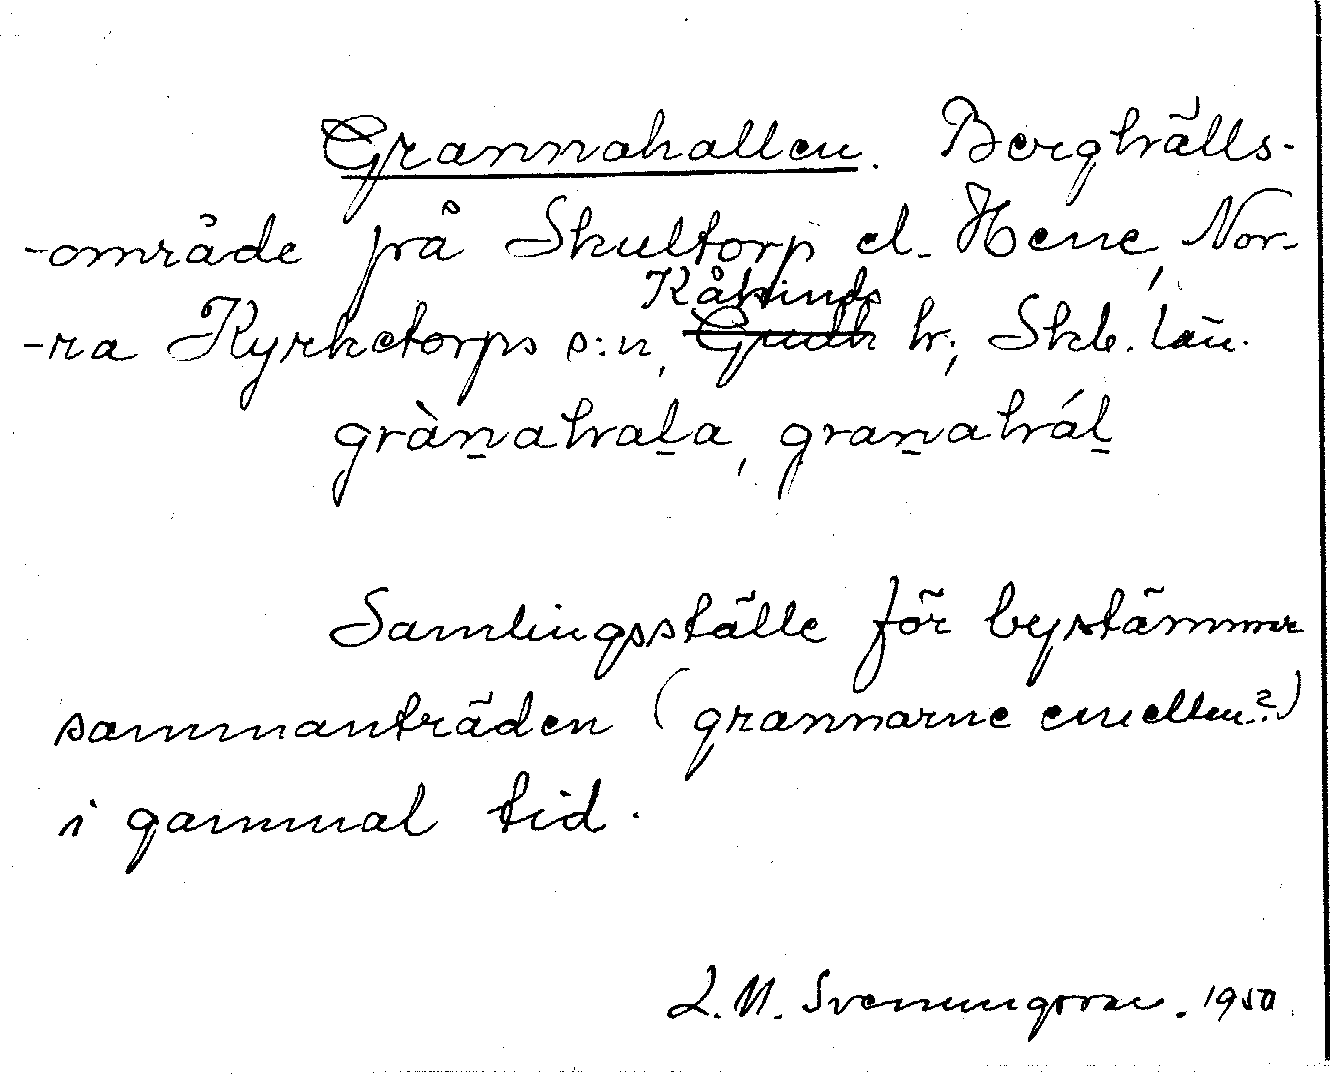 Grannahallen. Berghälls-
-område på Skultorp el. Hene, Nor-
-ra Kyrketorps s:n, Kåkinds ~~Gudh~~ hr; Skb. län.
grànahala, granahál
Samlingsställe för bystämmor
sammanträden (grannarne emellan?)
i gammal tid.
L. M. Svenungsson. 1950